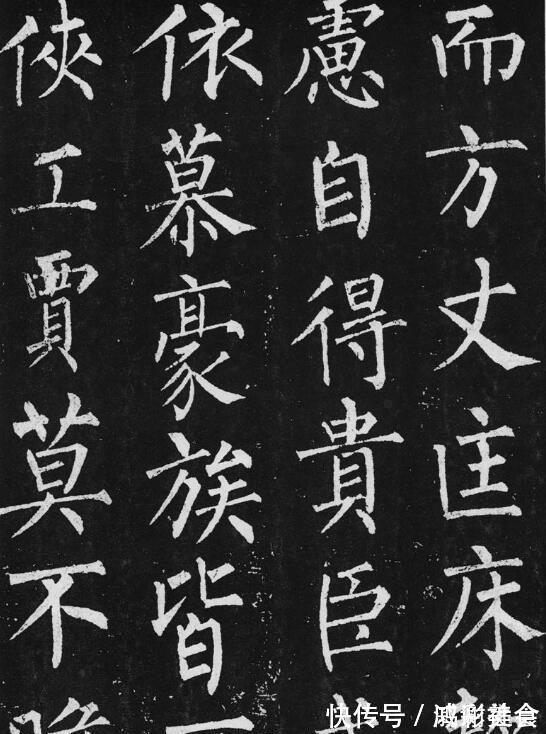 而方丈匡床
慮自得貴臣
依慕豪族皆
俠工賈莫不
快传号 /